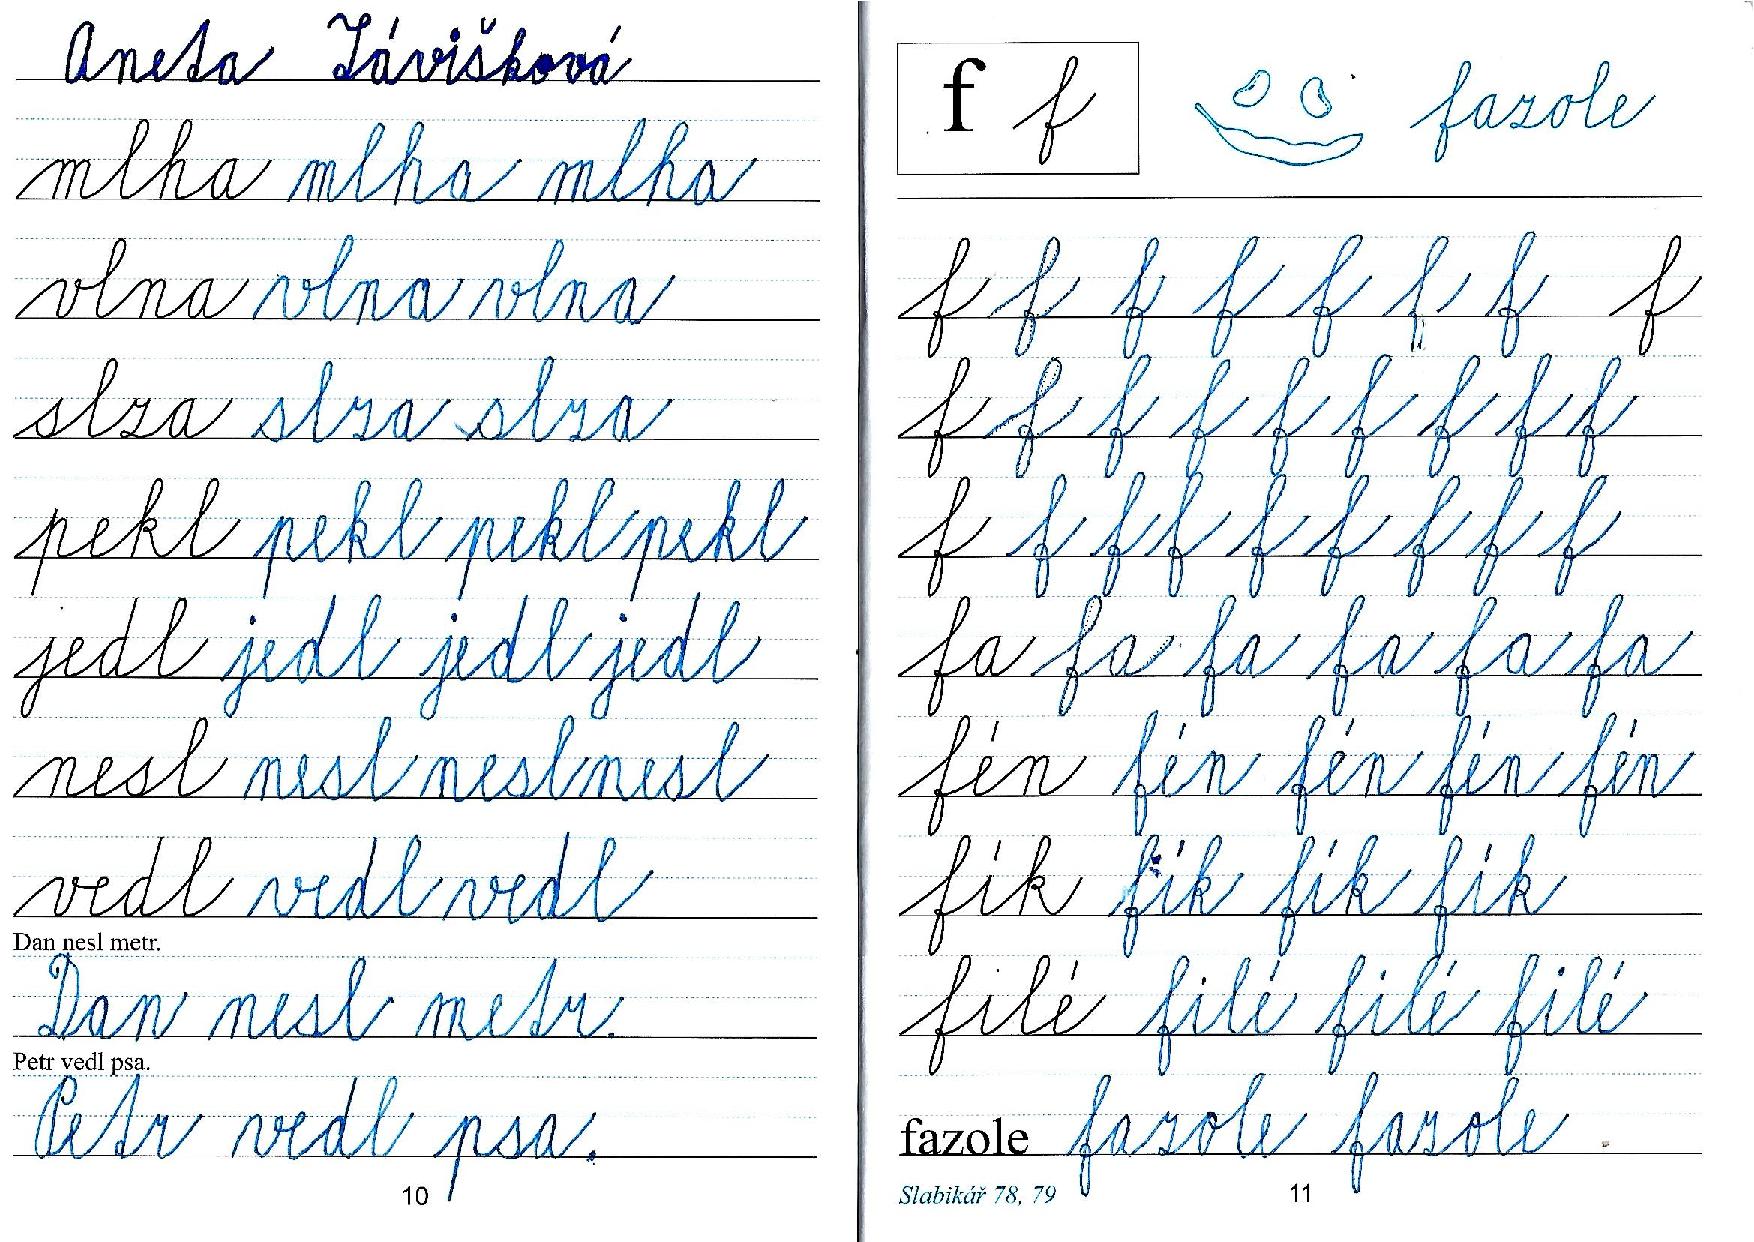 Aneta Závišková
mlha mlha mlha
vlna vlna vlna
slza slza slza
pekl pekl pekl pekl
jedl jedl jedl jedl
nesl nesl nesl nesl
vedl vedl vedl
Dan nesl metr.
Dan nesl metr.
Petr vedl psa.
Petr vedl psa.
10
f f fazole
f f f f f f f f
f f f f f f f f f
f f f f f f f f f
fa fa fa fa fa fa
fén fén fén fén fén
fík fík fík fík
filé filé filé filé
fazole fazole fazole
Slabikář 78, 79
11